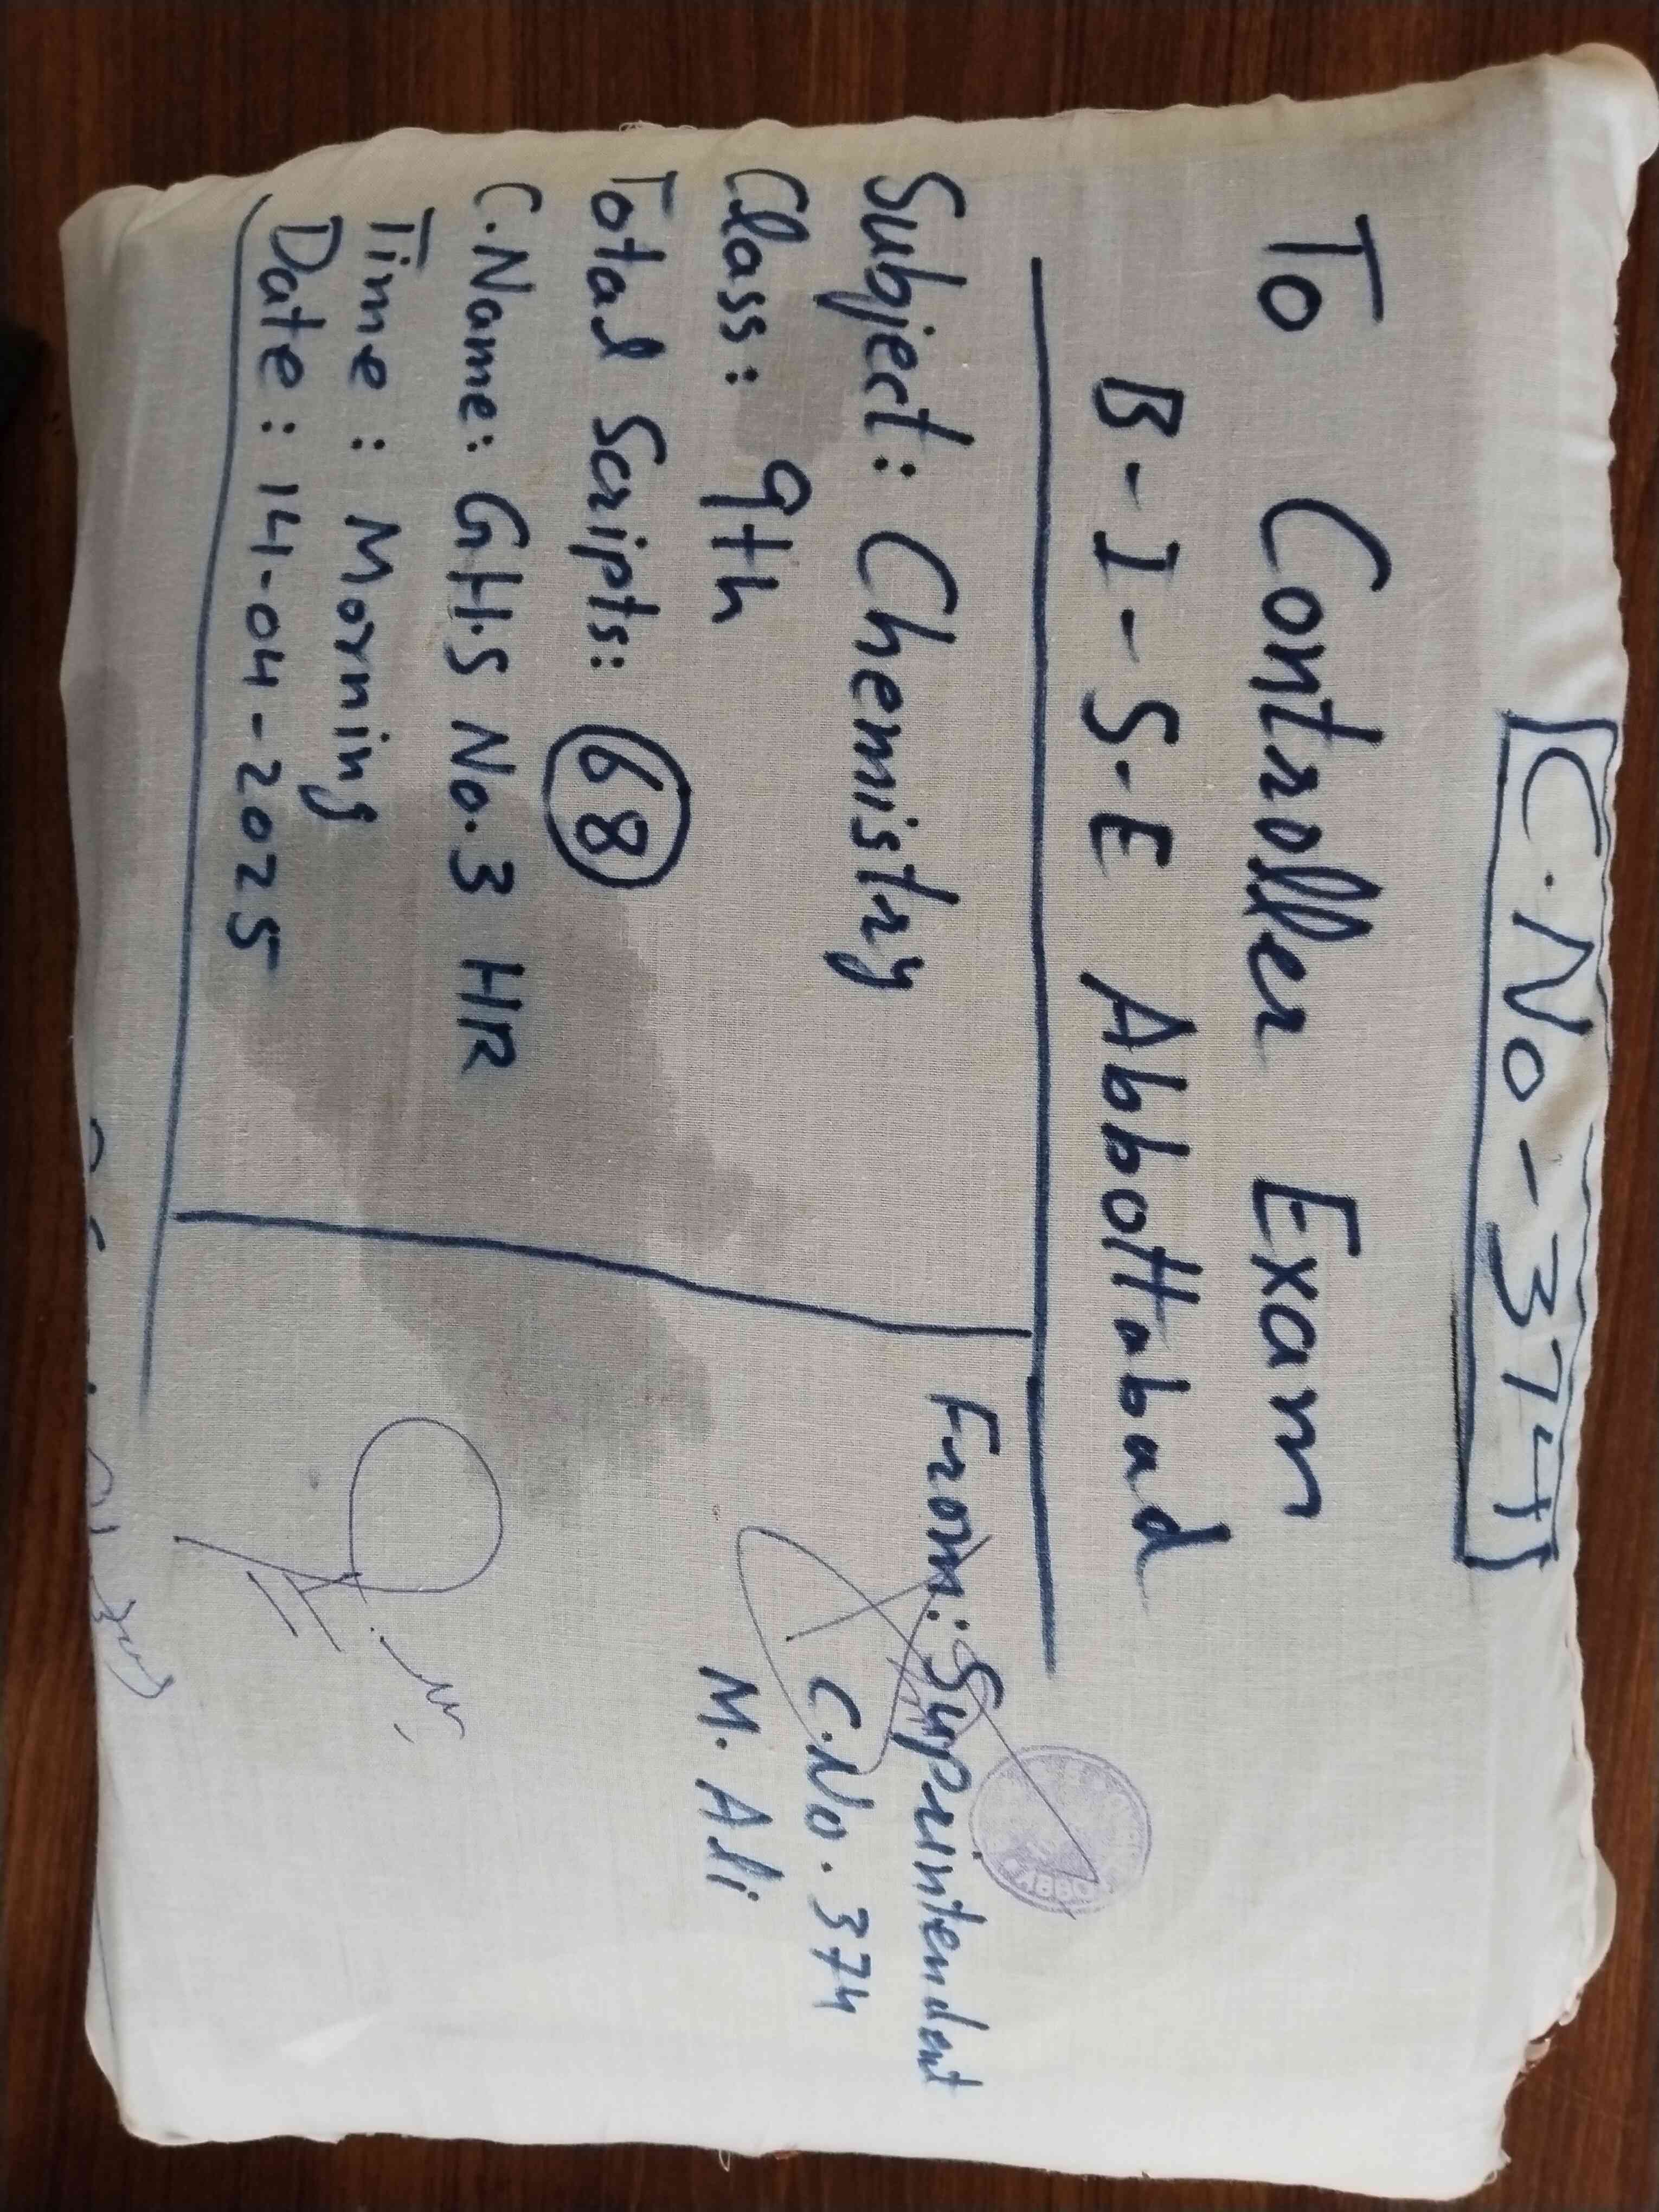 C.No - 374
To Controller Exam
B-I-S-E Abbottabad
Subject: Chemistry
Class: 9th
Total Scripts: 68
C.Name: G.H.S No.3 HR
Time: Morning
Date: 14-04-2025
From: Superintendent
C.No. 374
M. Ali